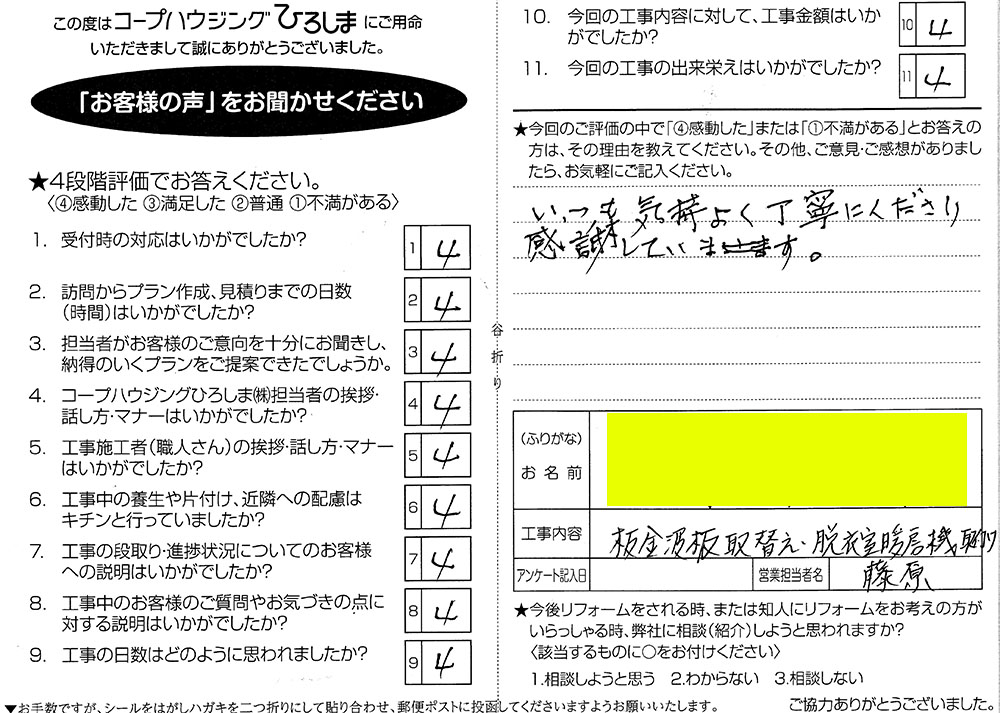 この度はコープハウジングひろしまにご用命
いただきまして誠にありがとうございました。
「お客様の声」をお聞かせください
★4段階評価でお答えください。
〈④感動した ③満足した ②普通 ①不満がある〉
1. 受付時の対応はいかがでしたか?
1 4
2. 訪問からプラン作成、見積りまでの日数
(時間)はいかがでしたか?
2 4
3. 担当者がお客様のご意向を十分にお聞きし、
納得のいくプランをご提案できたでしょうか。
3 4
4. コープハウジングひろしま㈱担当者の挨拶・
話し方・マナーはいかがでしたか?
4 4
5. 工事施工者(職人さん)の挨拶・話し方・マナー
はいかがでしたか?
5 4
6. 工事中の養生や片付け、近隣への配慮は
キチンと行っていましたか?
6 4
7. 工事の段取り・進捗状況についてのお客様
への説明はいかがでしたか?
7 4
8. 工事中のお客様のご質問やお気づきの点に
対する説明はいかがでしたか?
8 4
9. 工事の日数はどのように思われましたか?
9 4
▼お手数ですが、シールをはがしハガキを二つ折りにして貼り合わせ、郵便ポストに投函してくださいますようお願いいたします。
谷折り
10. 今回の工事内容に対して、工事金額はいか
がでしたか?
10 4
11. 今回の工事の出来栄えはいかがでしたか?
11 4
★今回のご評価の中で「④感動した」または「①不満がある」とお答えの
方は、その理由を教えてください。その他、ご意見・ご感想がありまし
たら、お気軽にご記入ください。
いつも気持よく丁寧にくださり
感謝しています。
(ふりがな)
お名前
工事内容 板金波板取替え・脱衣室暖房機取付
アンケート記入日 営業担当者名 藤原
★今後リフォームをされる時、または知人にリフォームをお考えの方が
いらっしゃる時、弊社に相談(紹介)しようと思われますか?
〈該当するものに○をお付けください〉
1.相談しようと思う 2.わからない 3.相談しない
ご協力ありがとうございました。